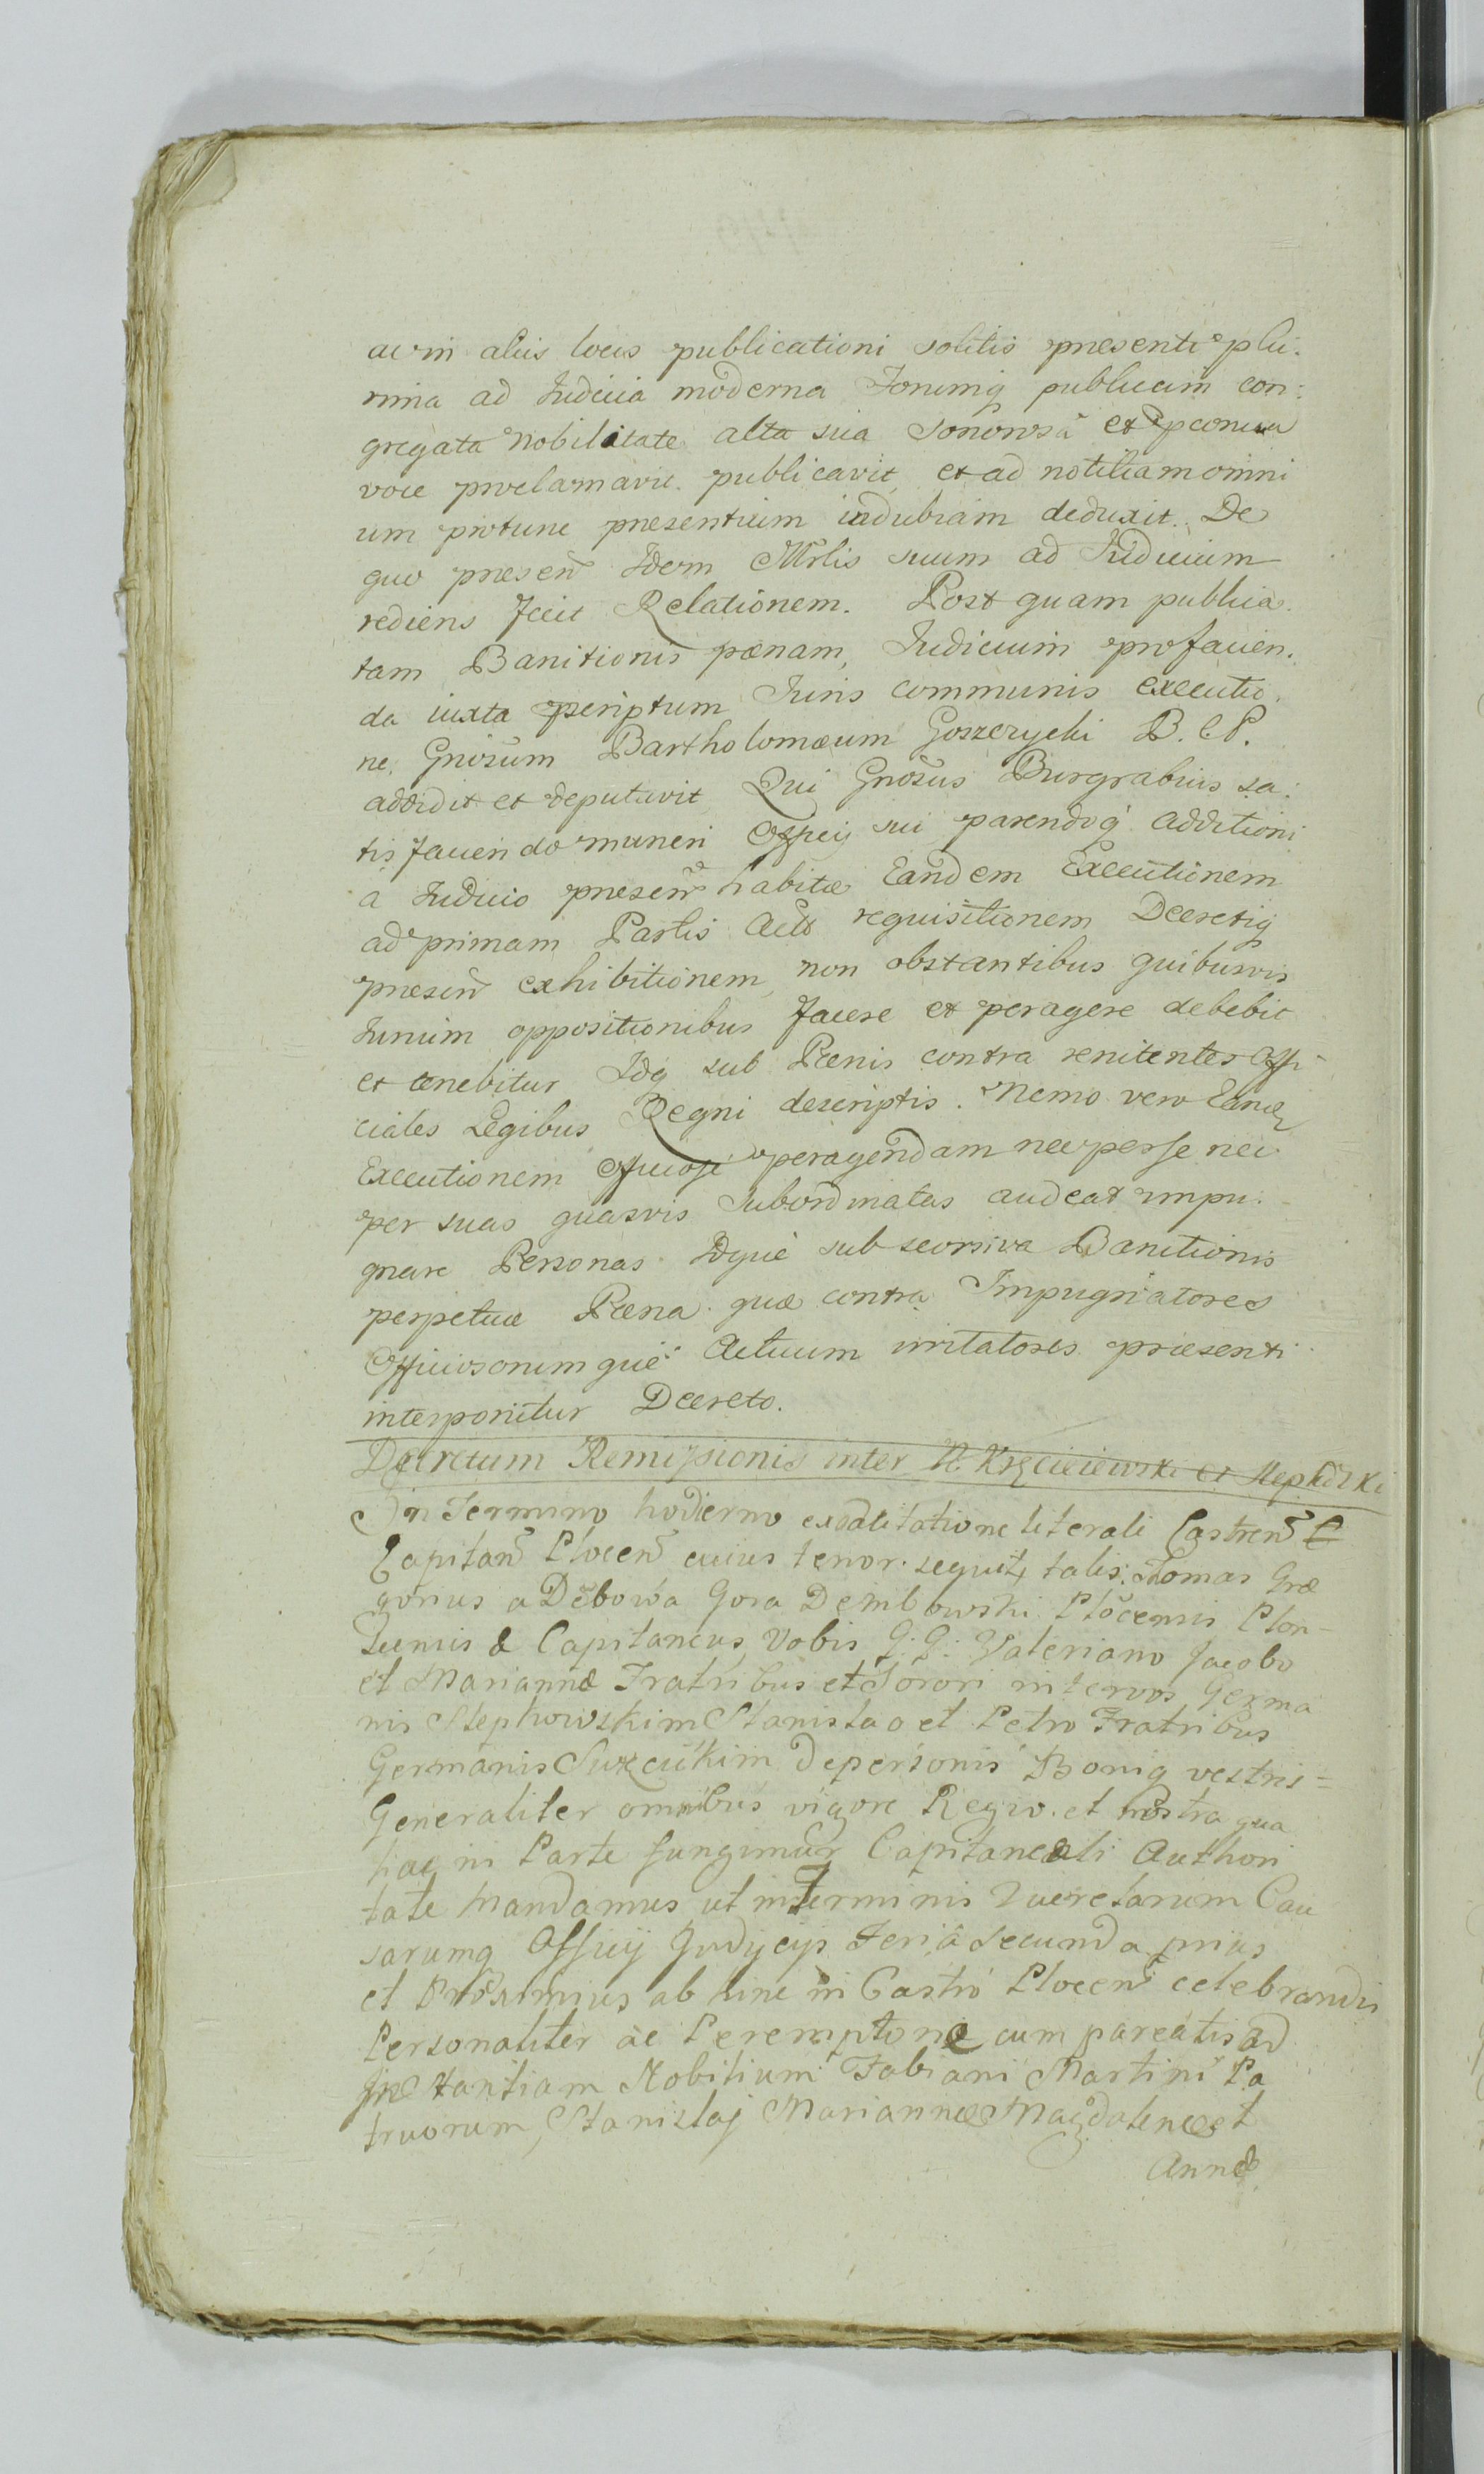 ac in aliis locis publicationi solitis presenti plu:
rima ad Iudicia moderna Forumq publicum con:
gregata Nobilitate alta sua sonorosâ et
voce proclamavit publicavit, et ad notitiam omni
um protunc presentium indubiam deduxit. De
quo presen Idem Mrlis suum ad Iudicium
rediens fecit Relationem. Post quam publica.
tam Banitionis pænam, Iudicium pro facien.
da iuxta pscriptum Iuris communis executio.
ne. Gnosum Bartholomæum Goszczycki B. C. P.
addidit et deputavit Qui Gnosus Burgrabius sa:
tisfaciendo muneri Officij sui parendoq additioni
a Iudicio presen habitæ Eandem Executionem
ad primam Partis Act requisitionem Decretiq
presen exhibitionem, non obstantibus quibusvis
Iurium oppositionibus facere et peragere debebit
et tenebitur Idq sub Pænis contra renitentes Offi
ciales Legibus Regni descriptis. Nemo vero Eand
Executionem Officiose peragendam nec per se nec
per suas quasvis Subordinatas audeat impu:
gnare Personas Idque sub seorsiva Banitionis
perpetuæ Pæna quæ contra Impugnatores
Officiosorumque Actuum irritatores præsenti
interponitur Decreto.
Decretum Remissionis inter N. et
In Termino hodierno ex citatione literali Castren
Capitan Plocen cuius tenor sequit talis. Thomas Gre
gorius a Dębowa Gora Dembowski Plocensis Plon-
scensis & Capitaneus, Vobis G. G. Valeriano Jacobo
et Mariannæ Fratribus et Sorori inter vos Germa
nis Stanislao et Petro Fratribus
Germanis de personis Bonisq vestris =
Generaliter omnibus vigore Regio. et nostra qua
hac in Parte fungimur Capitaneali Authori
tate Mandamus ut in Terminis Querelarum Cau
sarumq Officij Judycijs Feria Secunda prius
et Proximius ab hinc in Castro Plocen celebrandis
Personaliter ac Peremptorie cum pareatis ad
Instantiam Nobilium Fabiani Martini Pa
truorum, Stanislaj Mariannæ Magdalenæ et
Annæ